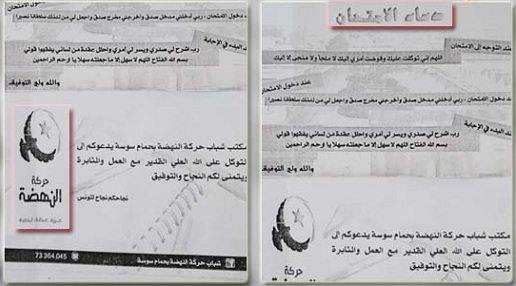 عند دخول الامتحان : ربي أدخلني مدخل صدق وأخرجني مخرج صدق واجعل لي من لدنك سلطانا نصيرا
عند البدء في الإجابة
رب اشرح لي صدري ويسر لي أمري واحلل عقدة من لساني يفقهوا قولي
بسم الله الفتاح اللهم لا سهل إلا ما جعلته سهلا يا رحم الراحمين
والله ولي التوفيق
مكتب شباب حركة النهضة بحمام سوسة يدعوكم إلى
التوكل على الله العلي القدير مع العمل والمثابرة
ويتمنى لكم النجاح والتوفيق
نجاحكم نجاح لتونس
حركة
النهضة
73 364 045
شباب حركة النهضة بحمام سوسة
دعاء الامتحان
عند التوجه إلى الامتحان
اللهم إني توكلت عليك وفوضت أمري إليك لا ملجأ ولا منجى إلا إليك
عند دخول الامتحان
دخول الامتحان : ربي أدخلني مدخل صدق وأخرجني مخرج صدق واجعل لي من لدنك سلطانا نصيرا
عند البدء في الإجابة
رب اشرح لي صدري ويسر لي أمري واحلل عقدة من لساني يفقهوا قولي
بسم الله الفتاح اللهم لا سهل إلا ما جعلته سهلا يا رحم الراحمين
والله ولي التوفيق
مكتب شباب حركة النهضة بحمام سوسة يدعوكم إلى
التوكل على الله العلي القدير مع العمل والمثابرة
ويتمنى لكم النجاح والتوفيق
حركة